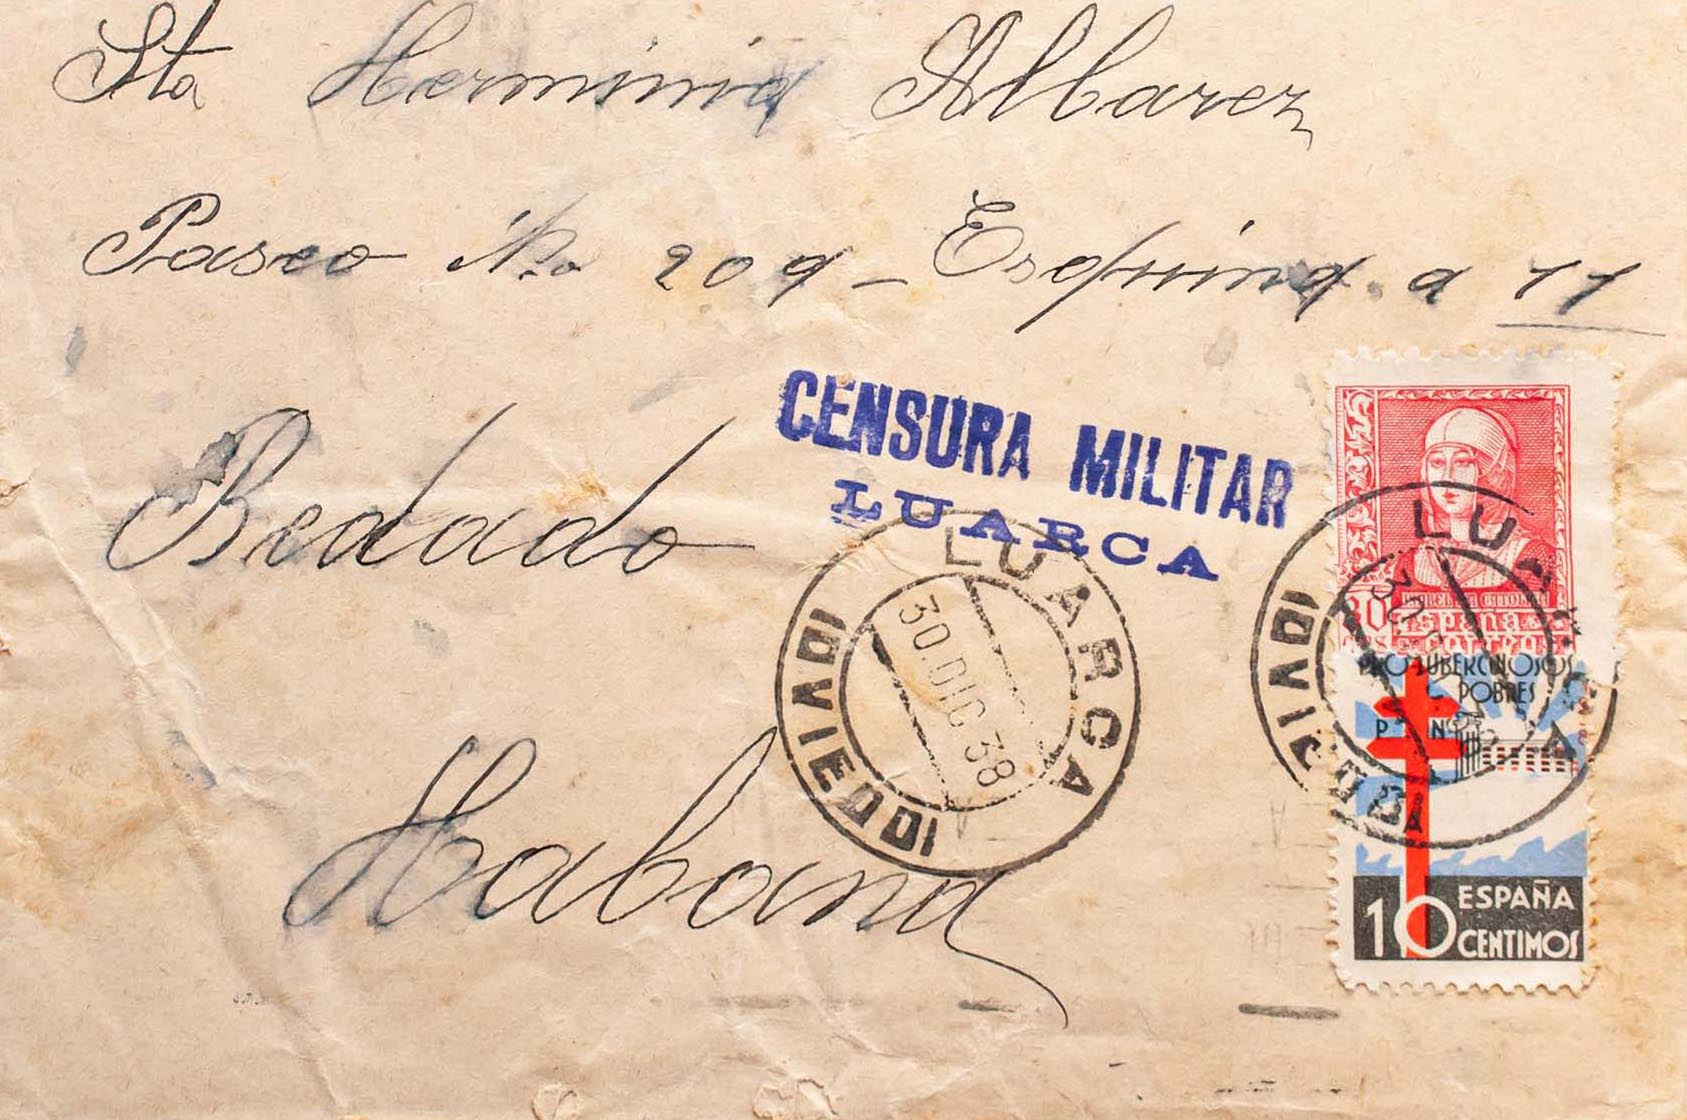 Sta Herminia Albarez
Paseo No 209 - Esquina a 11
Bedado
Habana
CENSURA MILITAR
LUARCA
LUARCA
30.DIC 38
OVIEDO
ISABEL LA CATOLICA
30
ESPAÑA
CORREOS
LUARCA
30
OVIEDO
PRO TUBERCULOSOS
POBRES
P N A
10 ESPAÑA
CENTIMOS